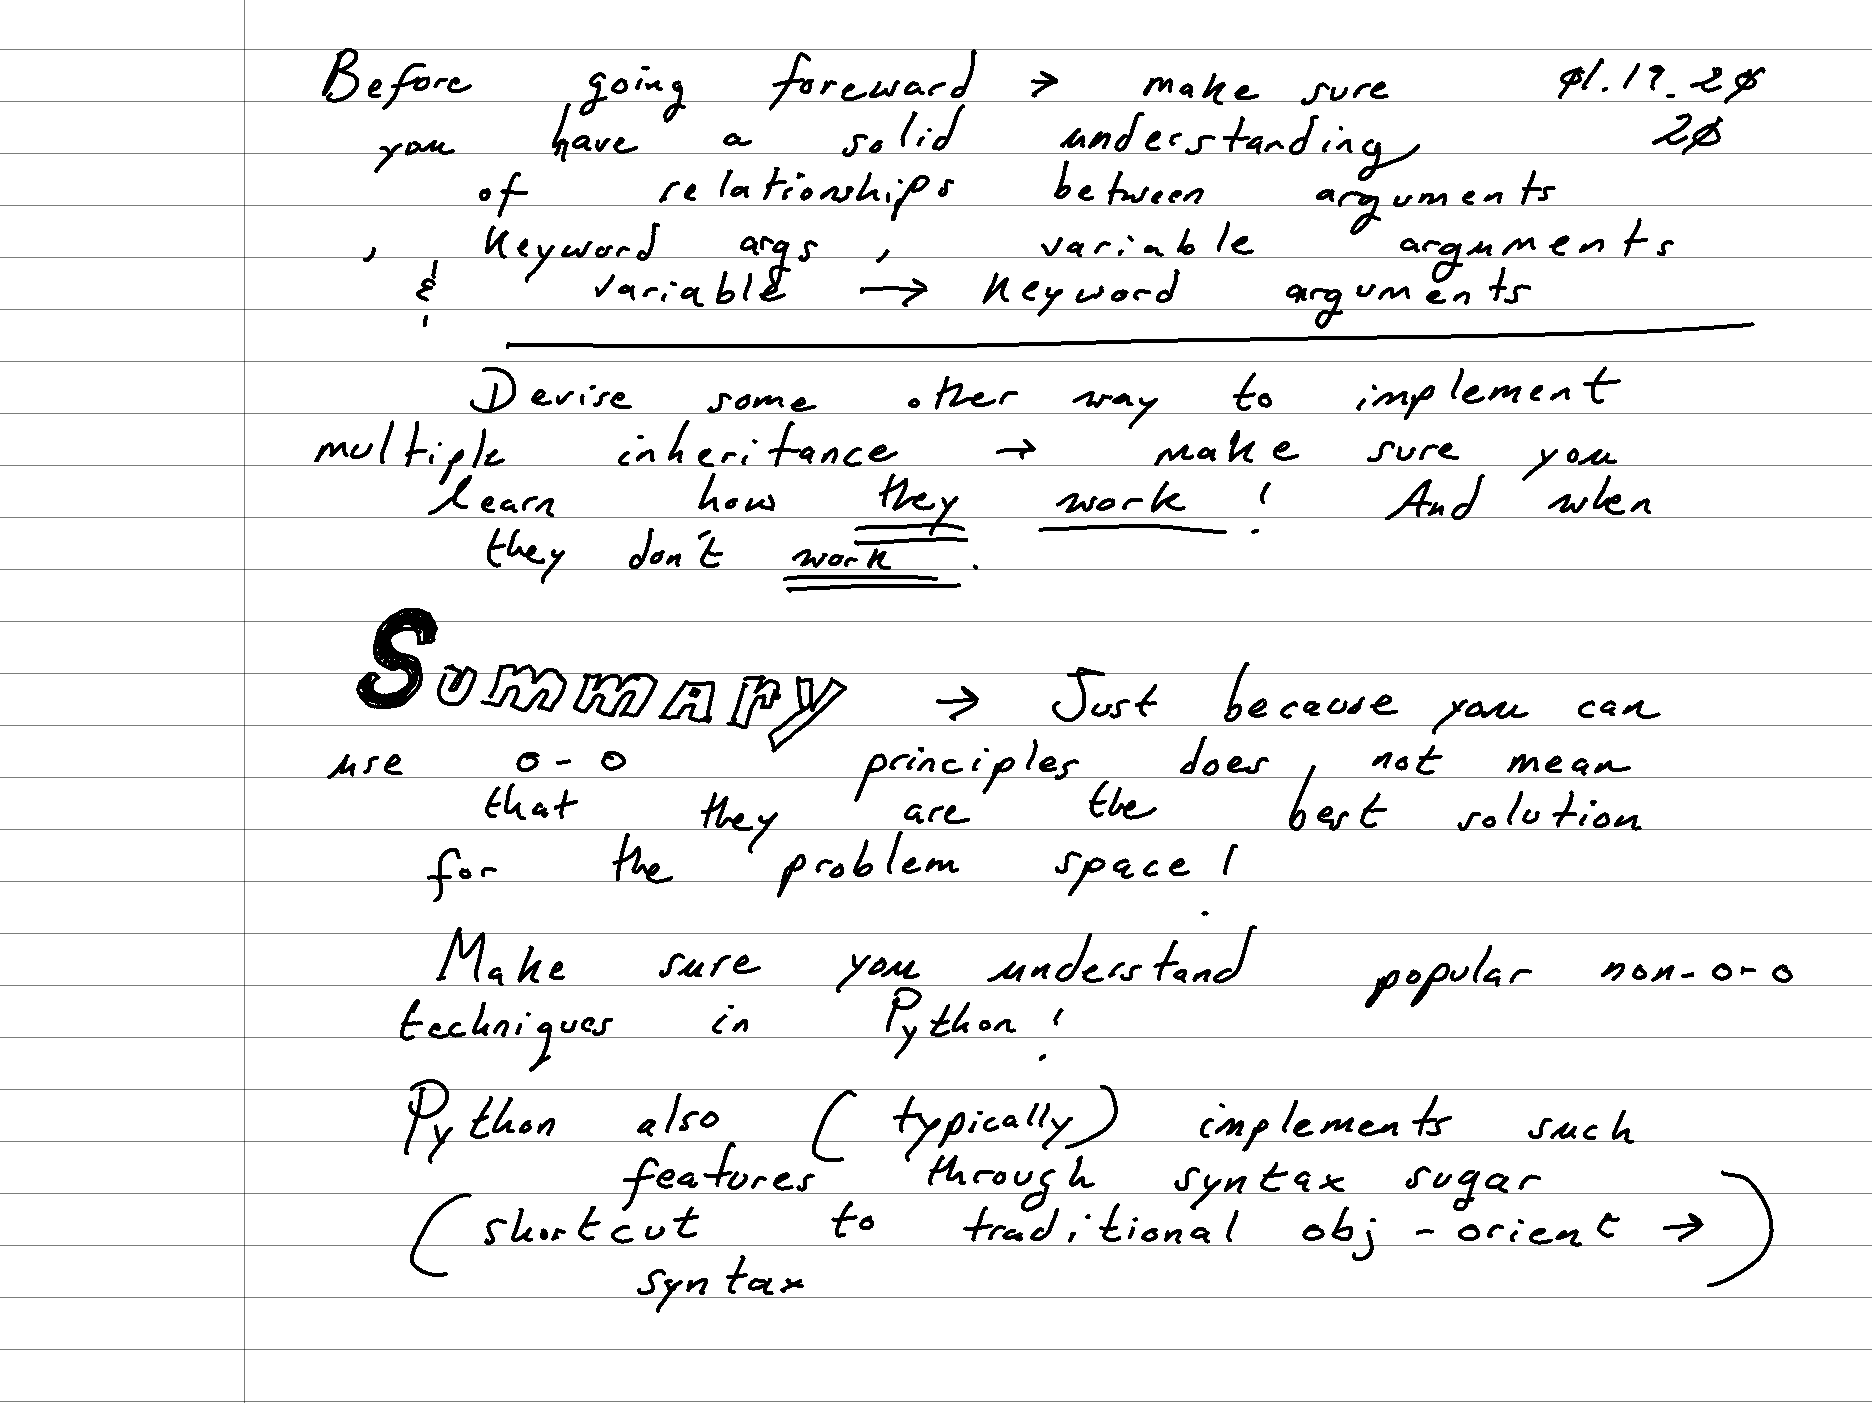 Before going foreward → make sure 01.19.20
you have a solid understanding 20
of relationships between arguments
, keyword args, variable arguments
& variable → keyword arguments
Devise some other way to implement
multiple inheritance → make sure you
learn how they work! And when
they don't work.
Summary → Just because you can
use o-o principles does not mean
that they are the best solution
for the problem space!
Make sure you understand popular non-o-o
techniques in Python!
Python also (typically) implements such
features through syntax sugar
(shortcut to traditional obj-orient →)
syntax